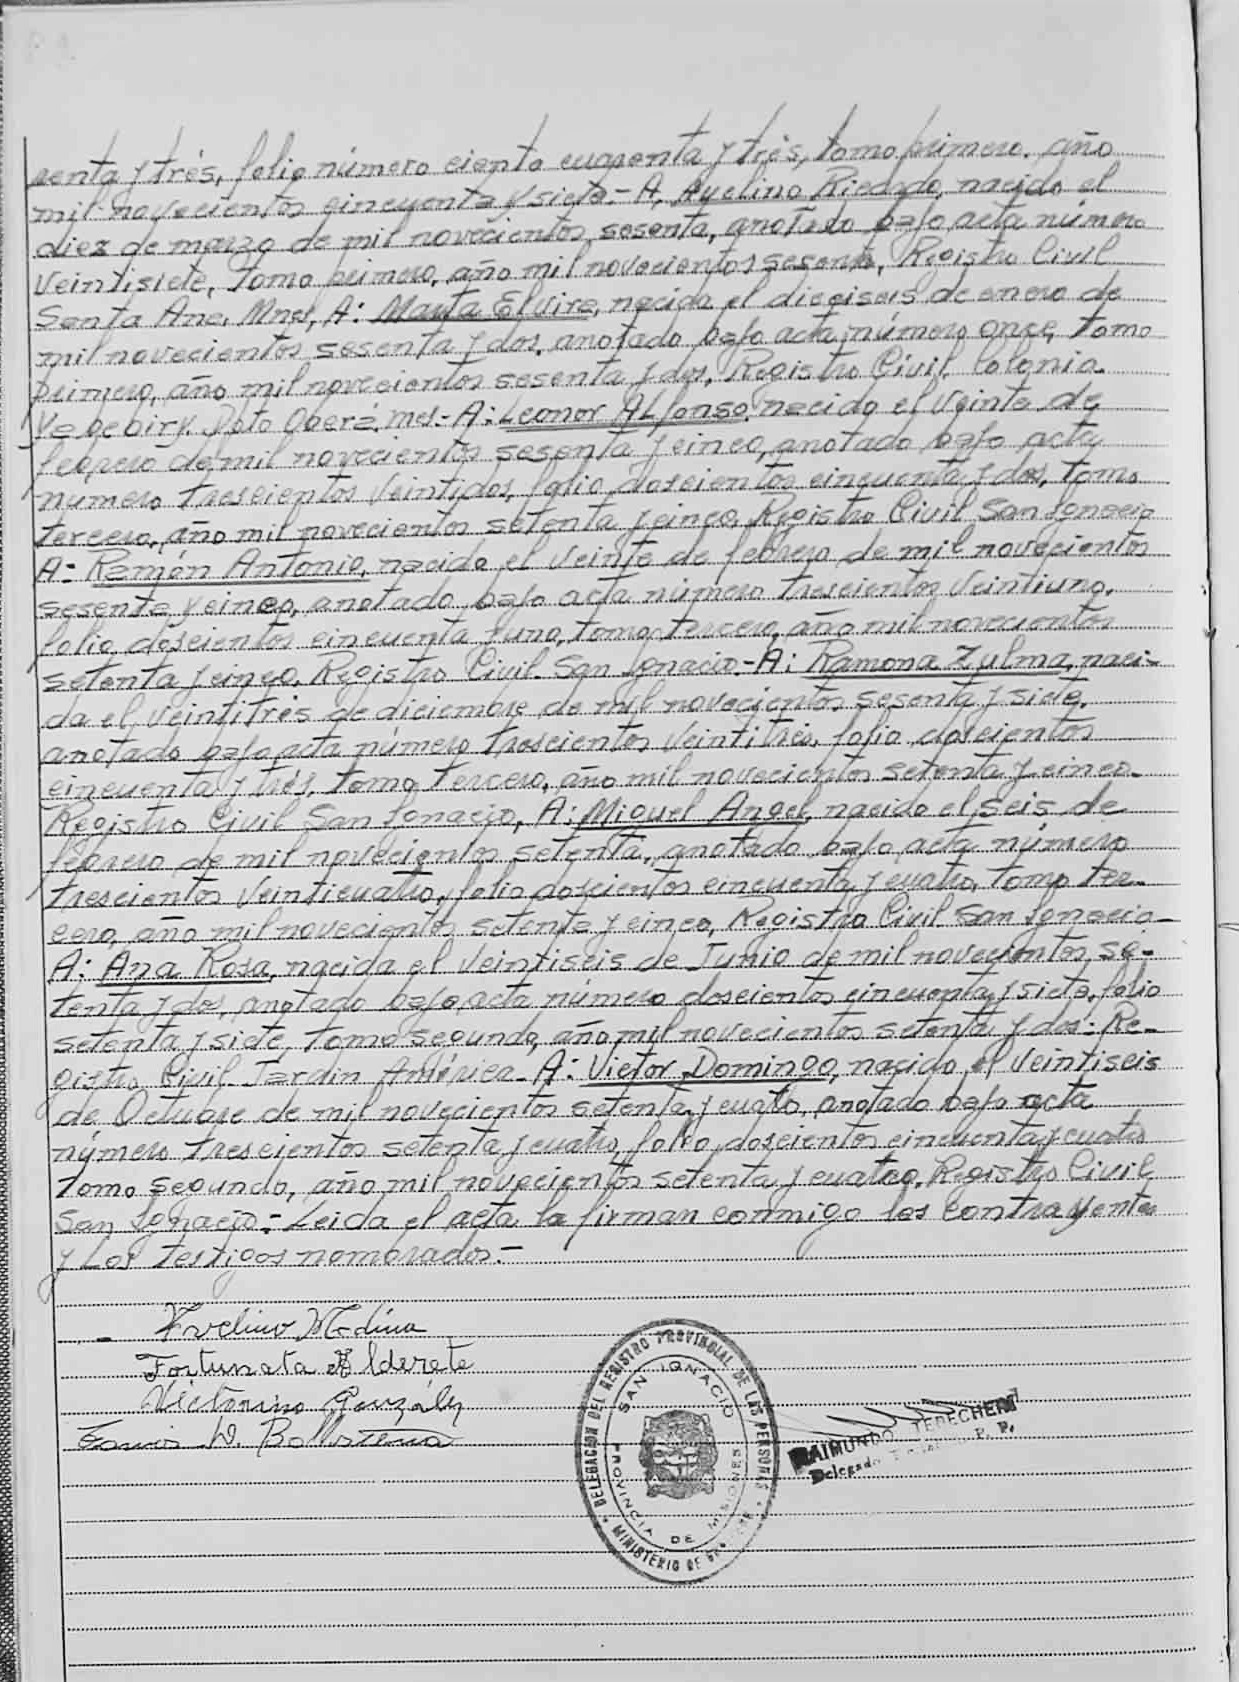 renta y tres, folio número ciento cuarenta y tres, tomo primero, año
mil novecientos cincuenta y siete.- A, Avelino Ricardo, nacido el
diez de marzo de mil novecientos sesenta, anotado bajo acta número
veintisiete, tomo primero, año mil novecientos sesenta, Registro Civil
Santa Ana, Mnes, A: Marta Elvira, nacida el dieciseis de enero de
mil novecientos sesenta y dos, anotado bajo acta número once, tomo
primero, año mil novecientos sesenta y dos, Registro Civil Colonia
Yabebiry. Dpto Oberá. mes.- A: Leonor Alfonso, nacido el veinte de
febrero de mil novecientos sesenta y cinco, anotado bajo acta
numero trescientos veintidos, folio doscientos cincuenta y dos, tomo
tercero, año mil novecientos setenta y cinco, Registro Civil San Ignacio
A: Ramón Antonio, nacido el veinte de febrero de mil novecientos
sesenta y cinco, anotado bajo acta número trescientos veintiuno,
folio doscientos cincuenta y uno, tomo tercero, año mil novecientos
setenta y cinco, Registro Civil San Ignacio.- A: Ramona Zulma, naci-
da el veintitrés de diciembre de mil novecientos sesenta y siete,
anotado bajo acta número trescientos veintitrés, folio doscientos
cincuenta y trés, tomo tercero, año mil novecientos setenta y cinco.
Registro Civil San Ignacio, A: Miguel Angel, nacido el seis de
febrero de mil novecientos setenta, anotado bajo acta número
trescientos veinticuatro, folio doscientos cincuenta y cuatro, tomo ter-
cero, año mil novecientos setenta y cinco, Registro Civil San Ignacio-
A: Ana Rosa, nacida el veintiseis de Junio de mil novecientos se-
tenta y dos, anotado bajo acta número doscientos cincuenta y siete, folio
setenta y siete, tomo segundo, año mil novecientos setenta y dos: Re-
gistro Civil Jardin América- A: Victor Domingo, nacido el veintiseis
de Octubre de mil novecientos setenta y cuatro, anotado bajo acta
número trescientos setenta y cuatro, folio doscientos cincuenta y cuatro
tomo segundo, año mil novecientos setenta y cuatro, Registro Civil
San Ignacio.- Leida el acta la firman conmigo los contrayentes
y los testigos nombrados.-
Avelino Medina
Fortunata Alderete
Victorino González
DELEGACION DEL REGISTRO PROVINCIAL DE LAS PERSONAS
SAN IGNACIO
PROVINCIA DE MISIONES
MINISTERIO DE
RAIMUNDO TERECHEN
Delegado R. P. P.